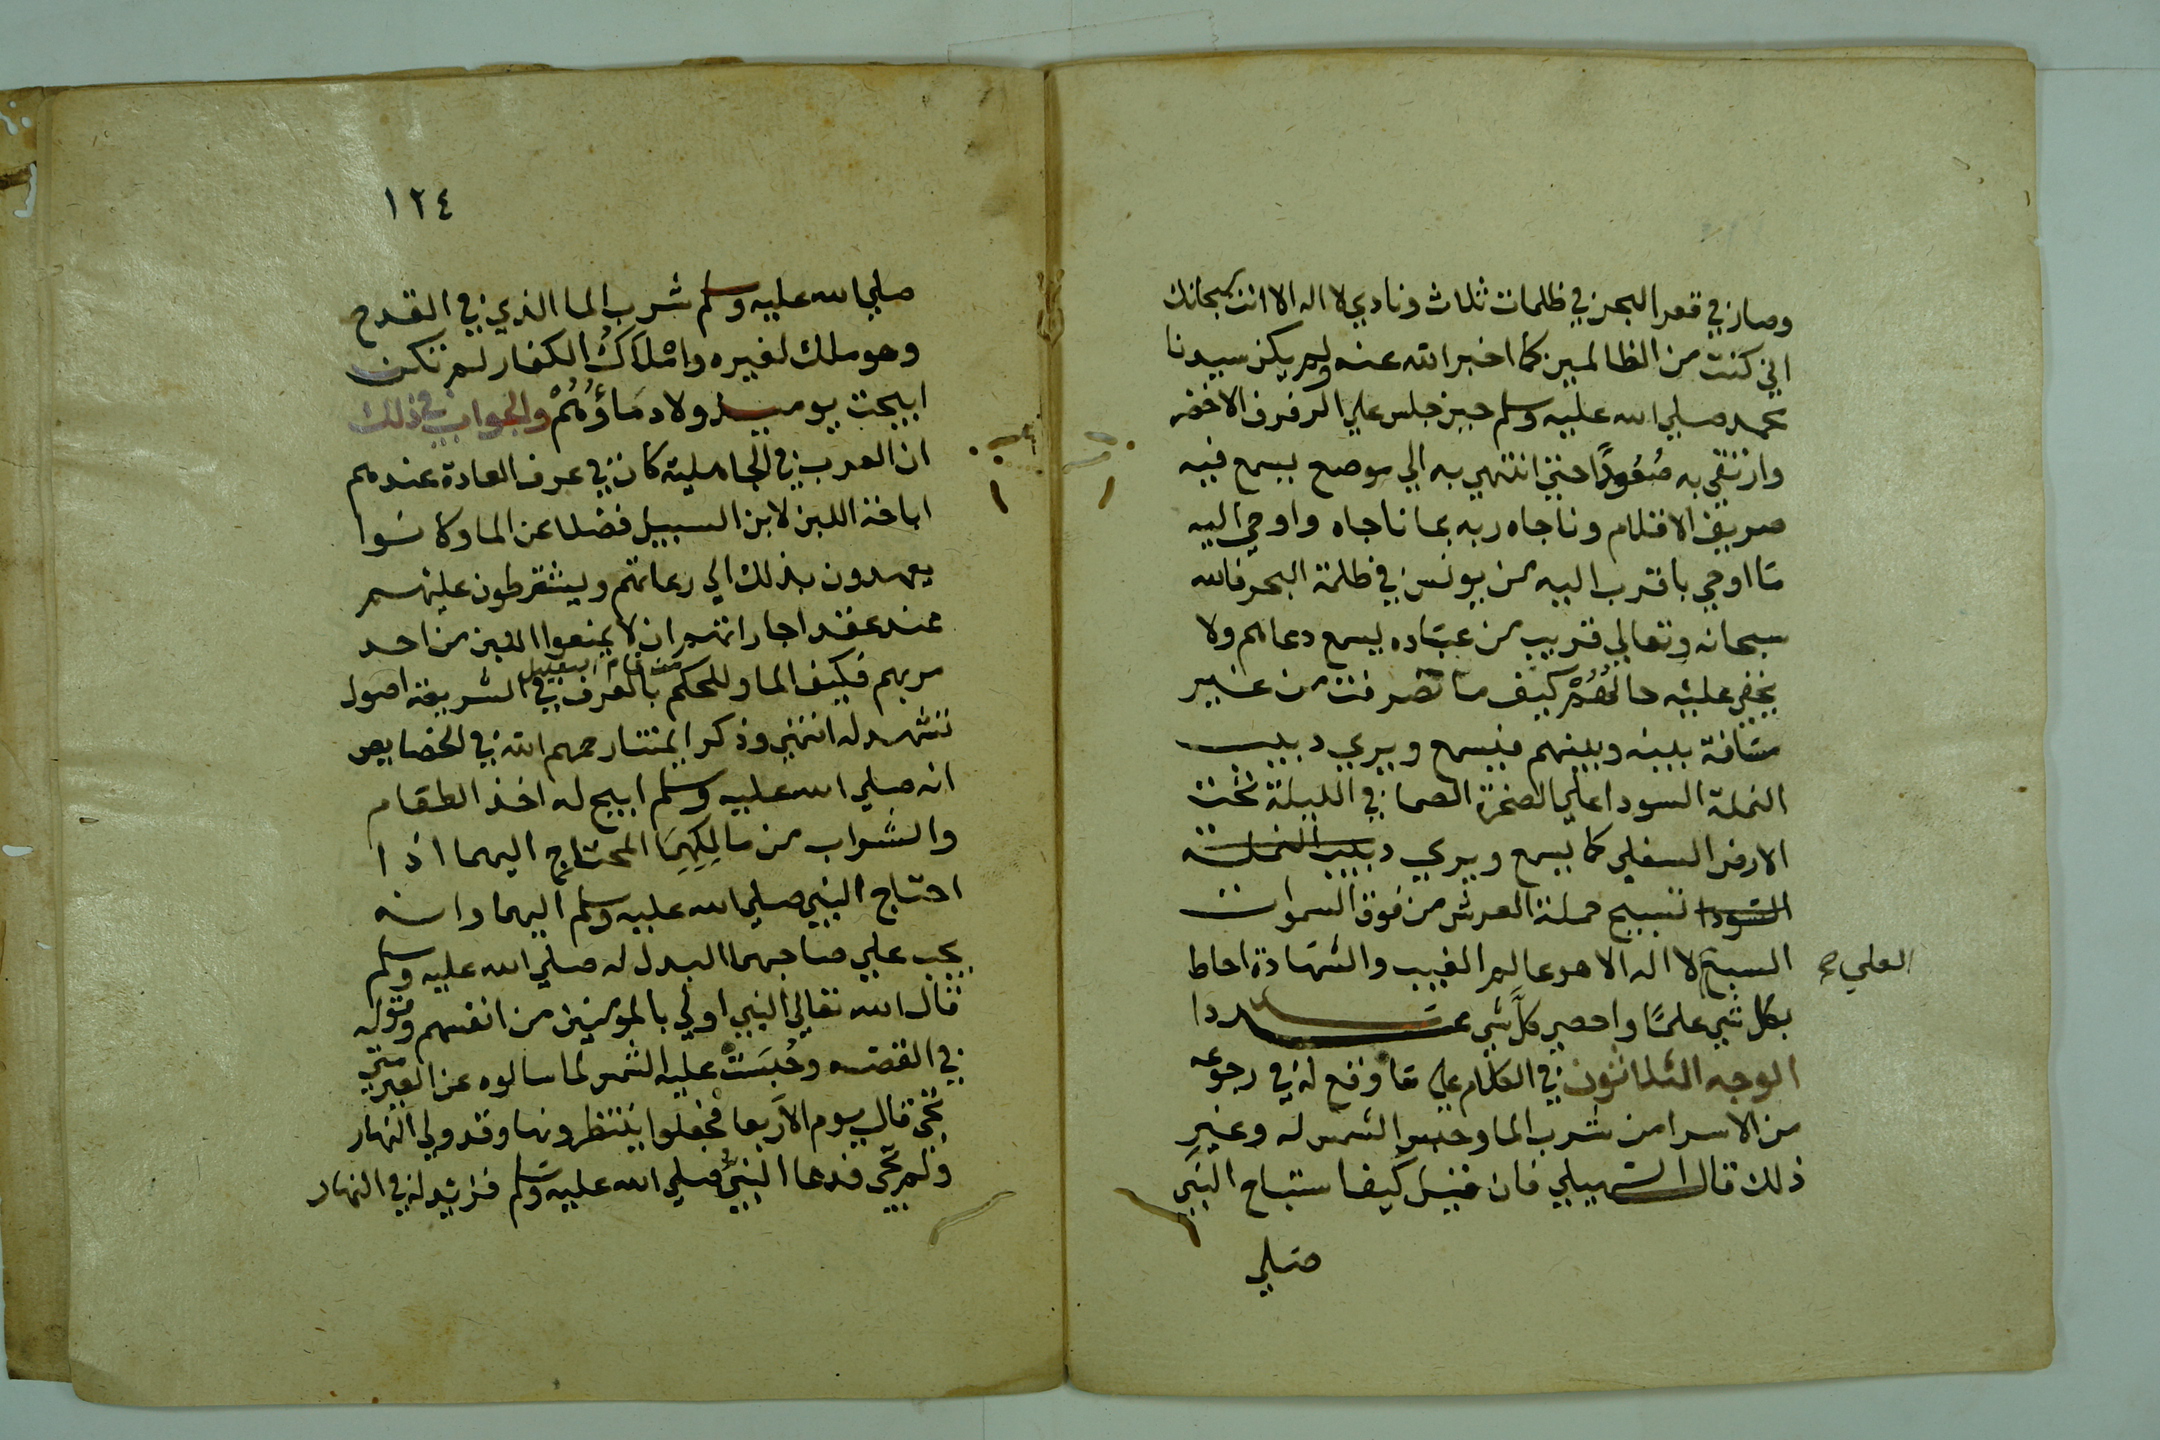 وصار في قعر البحر في ظلمات ثلاث ونادي لا اله الا انت سبحانك
اني كنت من الظالمين كما اخبر الله عنه ولم يكن سيدنا
محمد صلي الله عليه وسلم حين جلس علي الرفرف الاخضر
وارتقي به صُعُودًا حتي انتهي به الي موضع يسمع فيه
صريف الاقلام وناجاه ربه بما ناجاه واوحي اليه
ما اوحي باقرب اليه من يونس في ظلمة البحر فالله
سبحانه وتعالي قريب من عباده يسمع دعاهم ولا
يخفي عليه حالهُمْ كيف ما تصرفت من غير
مسافة بينه وبينهم فيسمع ويري دبيب
النملة السودا علي الصخرة الصما في الليلة تحت
الارض السفلي كما يسمع ويري دبيب النملة
السودا تسبيح حملة العرش من فوق السموات
السبع لا اله الا هو عالم الغيب والشهادة احاط
العلي صح
بكل شي علمًا واحصي كلَّ شي عددا
الوجه الثلاثون في الكلام علي ما وقع له في رجوعه
من الاسرا من شرب الما وحبس الشمس له وغير
ذلك قال السهيلي فان قيل كيف استباح النبي
صلي
١٢٤
صلي الله عليه وسلم شرب الما الذي في القدح
وهو ملك لغيره وامْلاَكُ الكفار لم تكن
ابيحت يوميذ ولا دمَاؤُهُمْ والجواب في ذلك
ان العرب في الجاهلية كان في عرف العادة عندهم
اباحة اللبن لابن السبيل فضلا عن الما وكانوا
يعهدون بذلك الي رعاتهم ويشترطون عليهم
عند عقد اجارتهم ان لا يمنعوا اللبن من احد
مر بهم فكيف الما وللحكم بالعرف في الشريعة اصول
تشهد له انتهي وذكر ايمتنا رحمهم الله في الخصايص
انه صلي الله عليه وسلم ابيح له اخذ الطعام
والشراب من مالِكِهِمَا المحتاج اليهما اذا
احتاج النبي صلي الله عليه وسلم اليهما وانه
يجب علي صاحبهما البدل له صلي الله عليه وسلم
قال الله تعالي النبي اولي بالمومنين من انفسهم وقوله
في القصة وحُبِسَتْ عليه الشمس لما سالوه عن العير متي
تجي قال يوم الاربعا فجعلوا ينتظرونها وقد ولي النهار
ولم تجي فدعا النبيُّ صلي الله عليه وسلم فزيد له في النهار